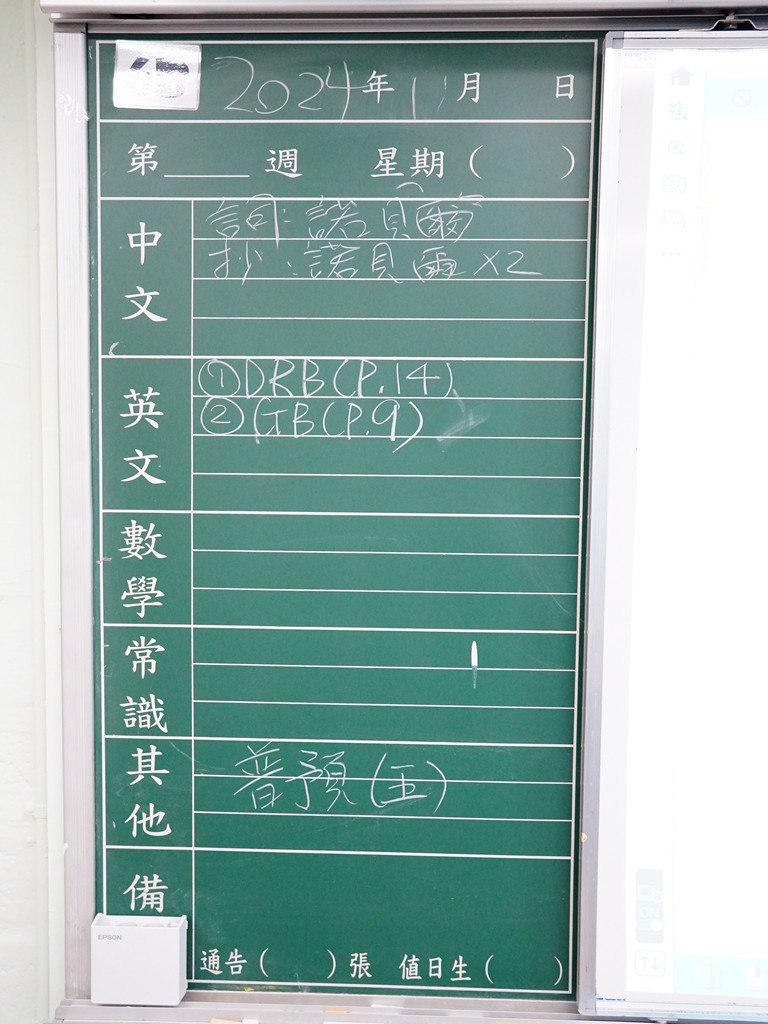 2024年 11月 日
第____週 星期( )
中文
詞:諾貝爾
抄:諾貝爾X2
英文
①DRB(P.14)
②GB(P.9)
數學
常識
其他
普預(五)
備
EPSON
通告( )張 值日生( )